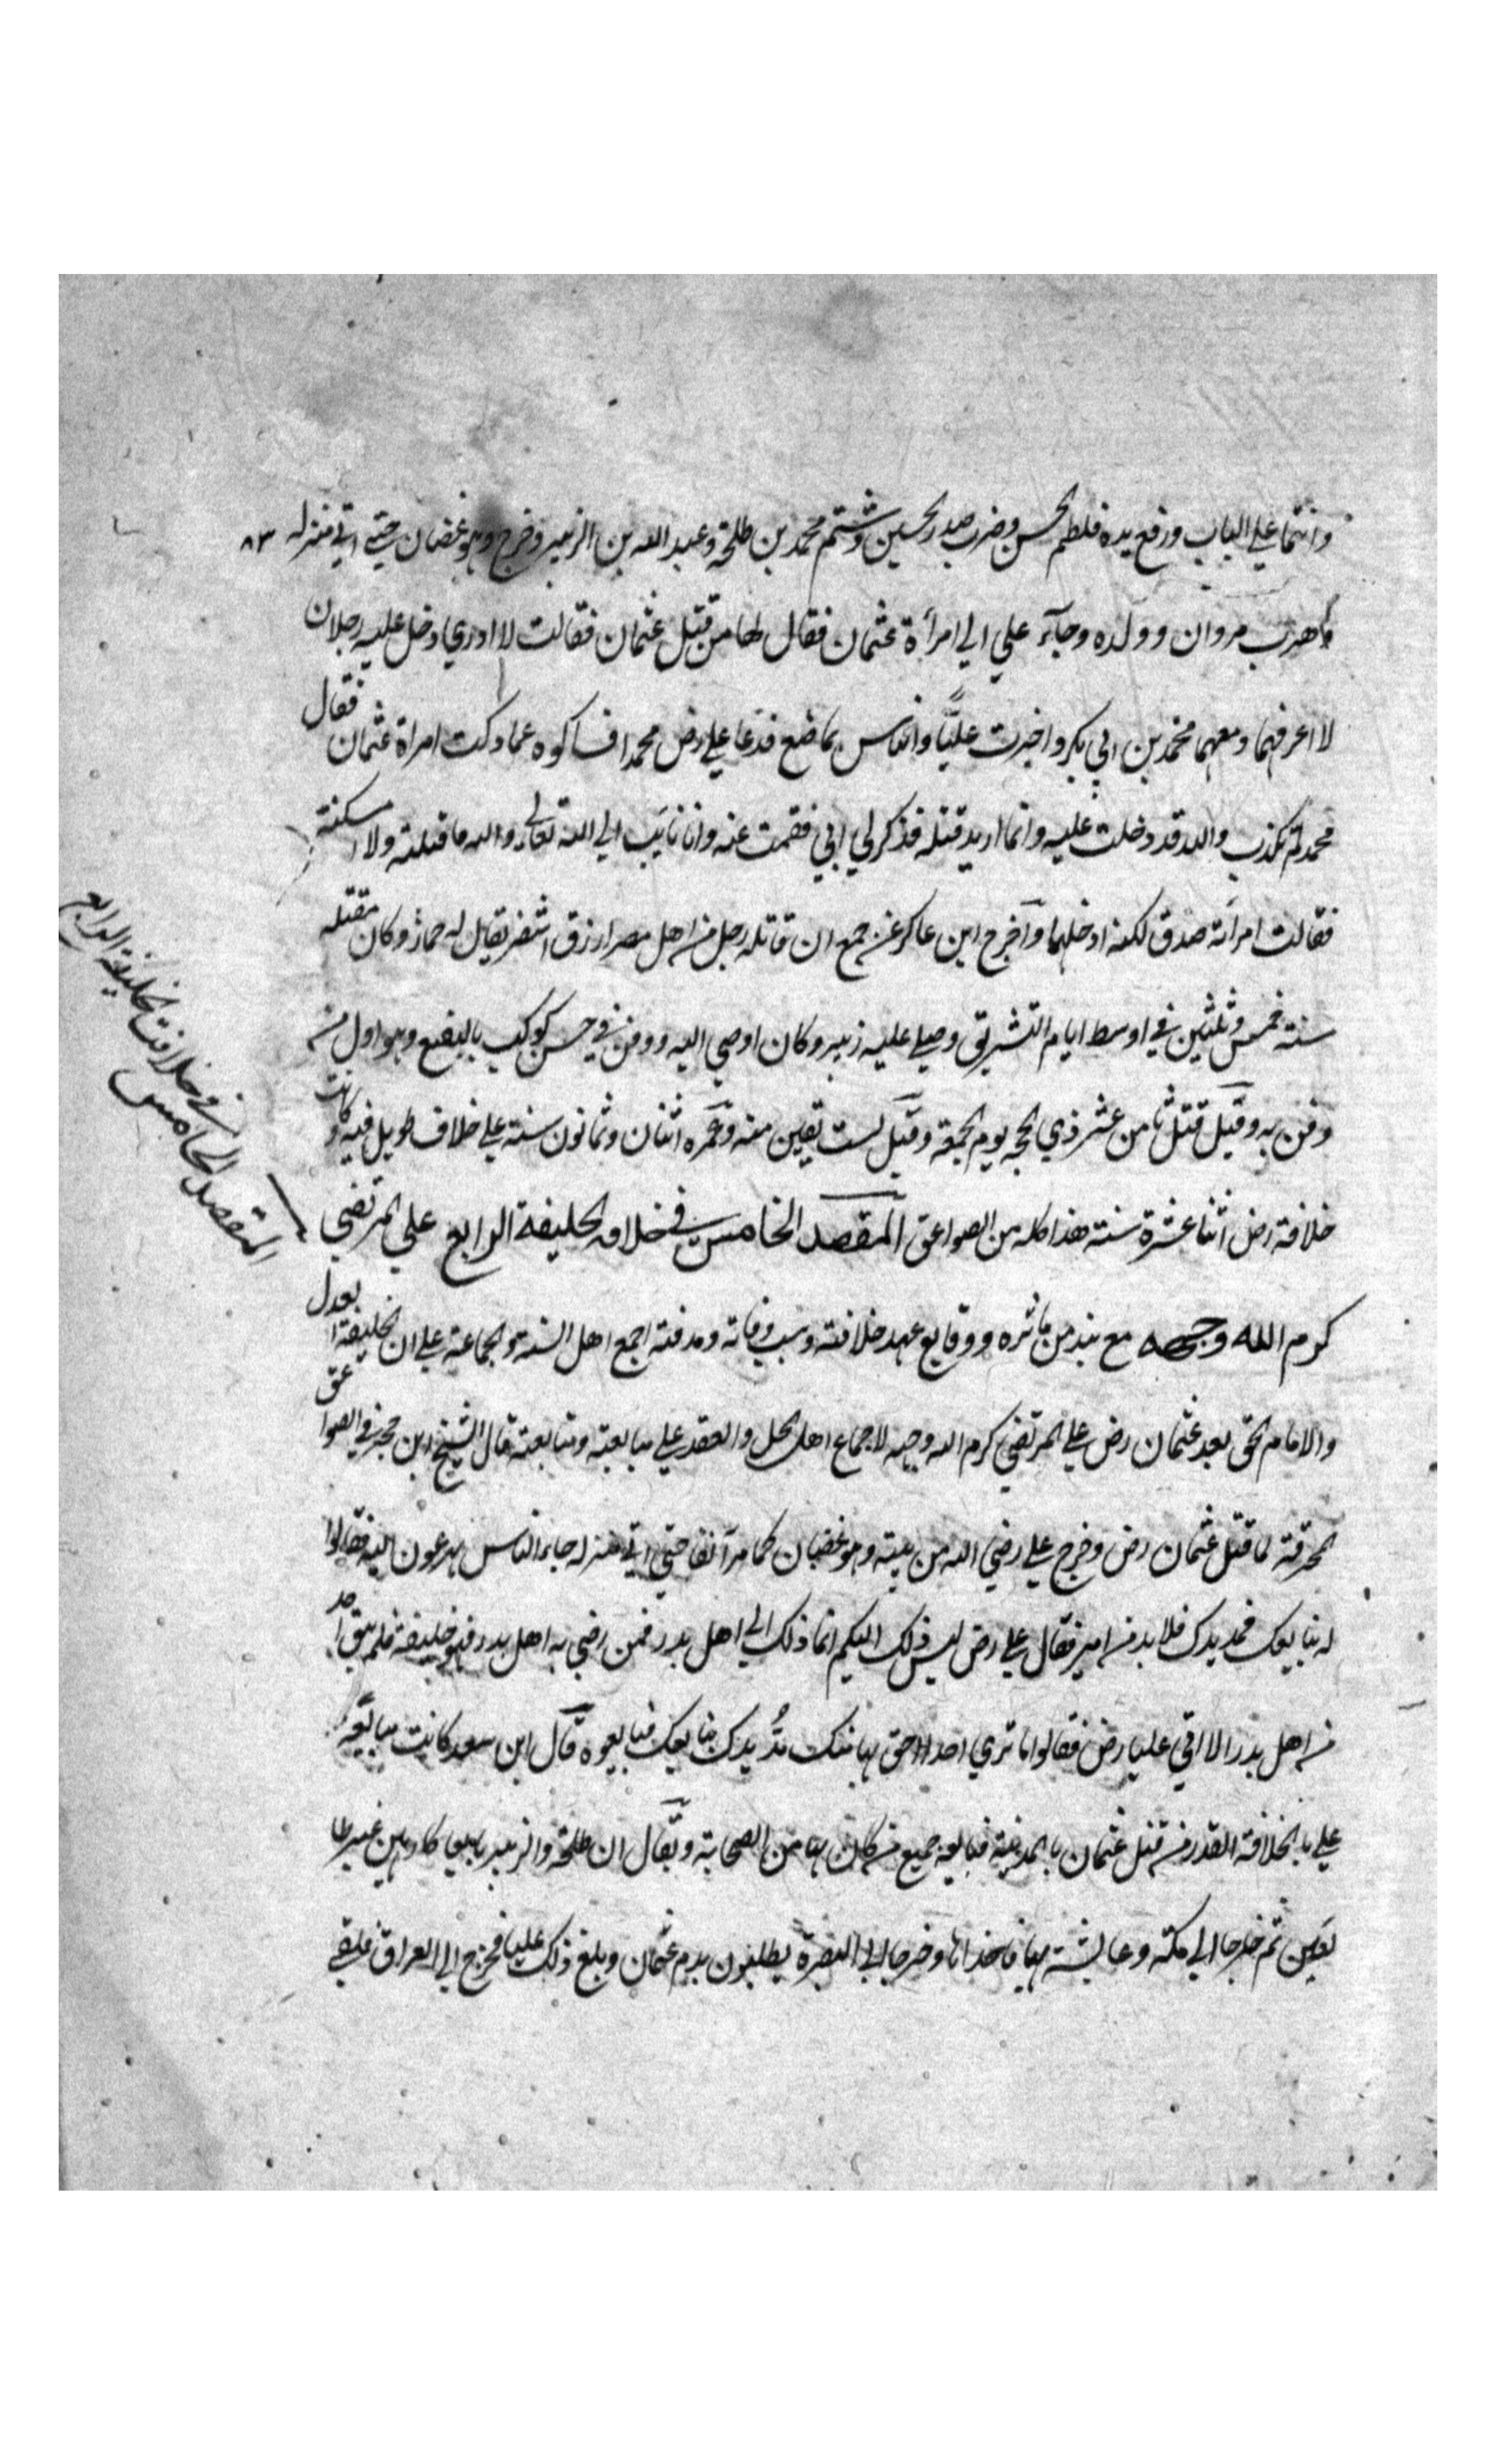 وانتما علي الباب ورفع يده فلطم الحسن وضرب صدر الحسين وشتم محمد بن طلحة وعبد الله بن الزبير وخرج وهو غضبان حتي اتي منزله ٨٣
وهرب مروان وولده وجآء علي الي امرأة عثمان فقال لها من قتل عثمان فقالت لا ادري دخل عليه رجلان
لا اعرفهما ومعهما محمد بن ابي بكر واخبرت عليًّا والناس بما صنع فدعا علي رض محمدا فساله عما ذكرت امراة عثمان فقال
محمد لم تكذب والله قد دخلت عليه وانما اريد قتله فذكر لي ابي فقمت عنه وانا تائب الي الله تعالي والله ما قتلته ولا امسكته
فقالت امرأته صدق لكنه ادخلهما وآخرج ابن عساكر عن جمع ان قاتله رجل من اهل مصر ازرق اشقر يقال له حمار وكان مقتله
سنة خمس وثلثين في اوسط ايام التشريق وصلي عليه زبير وكان اوصي اليه ودفن في حش كوكب بالبقيع وهو اول من
دفن به وقيل قتل ثامن عشر ذي الحجه يوم الجمعة وقيل لست بقين منه وعمره اثنان وثمانون سنة علي خلاف طويل فيه وكانت
خلافة رض اثنا عشرة سنة هذا كله من الصواعق المقصد الخامس في خلافه الخليفة الرابع علي المرتضي
كرم الله وجهه مع نبذ من مآثره ووقايع عهد خلافته وسبب وفاته ومدفنه اجمع اهل السنة والجماعة علي ان الخليفة بعدل
والامام الحق بعد عثمان رض علي المرتضي كرم الله وجهه لاجماع اهل الحل والعقد علي مبايعته ومتابعته قال الشيخ ابن حجر في الصواعق
المحرقة لما قتل عثمان رض وخرج علي رضي الله من بيته وهو غضبان كما مر آنفا حتي اتي منزله جاء الناس يهرعون اليه فقالوا
له نبايعك فمد يدك فلا بد من امير فقال علي رض ليس ذلك اليكم انما ذلك الي اهل بدر فمن رضي به اهل بدر فهو خليفة فلم يبق احد
من اهل بدر الا اتي عليا رض فقالوا ما نري احدا احق بها منك مُدّ يدك نبايعك فبايعوه قال ابن سعد كانت مبايعة
علي بالخلافة الغد من قتل عثمان بالمدينة فبايعه جميع من كان بها من الصحابة ويقال ان طلحة والزبير بايعا كارهين غير طا
يعين ثم خرجا الي مكة وعايشة بها فاخذاها وخرجا الي البصرة يطلبون بدم عثمان وبلغ ذلك عليا فخرج الي العراق فلقي
المقصد الخامس
في خلافت الخليفة الرابع